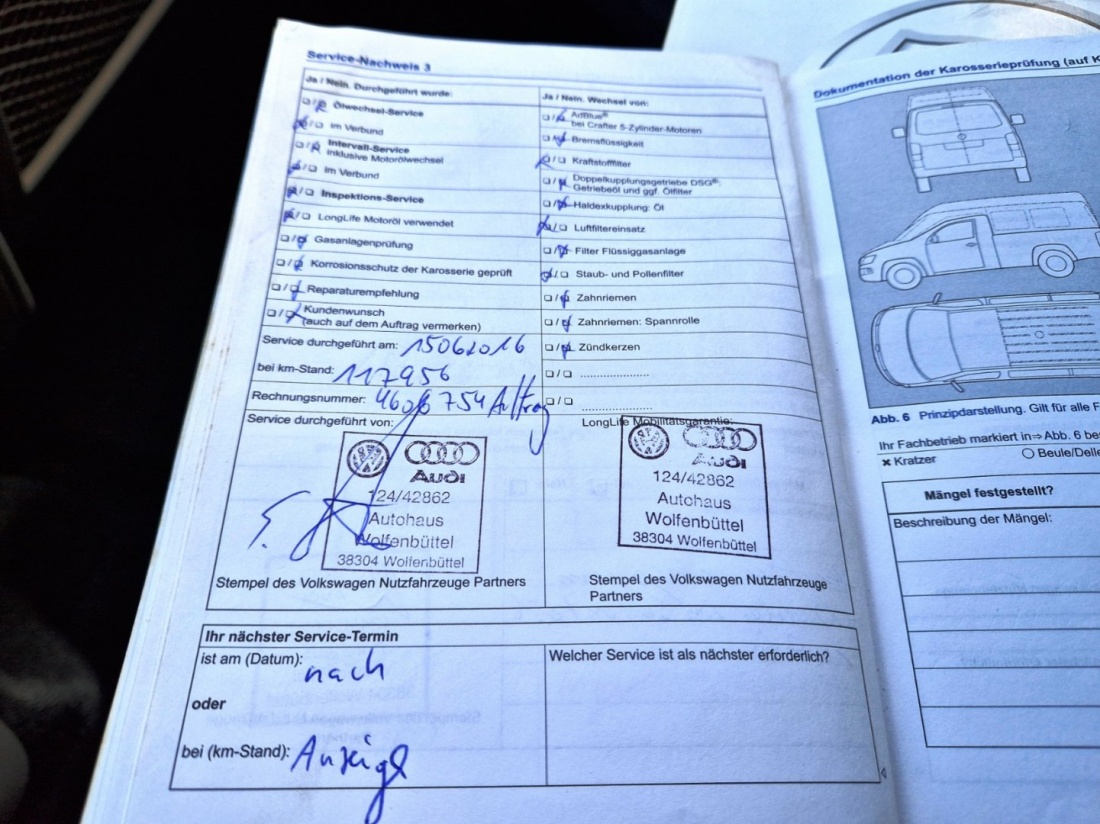 Service-Nachweis 3
Ja / Nein. Durchgeführt wurde:
Ölwechsel-Service
im Verbund
Intervall-Service
inklusive Motorölwechsel
im Verbund
Inspektions-Service
LongLife Motoröl verwendet
Gasanlagenprüfung
Korrosionsschutz der Karosserie geprüft
Reparaturempfehlung
Kundenwunsch
(auch auf dem Auftrag vermerken)
Service durchgeführt am: 15062016
bei km-Stand: 117956
Rechnungsnummer: 754 Auftrag
Service durchgeführt von:
Audi
124/42862
Autohaus
Wolfenbüttel
38304 Wolfenbüttel
Stempel des Volkswagen Nutzfahrzeuge Partners
Ja / Nein. Wechsel von:
AdBlue®
bei Crafter 5-Zylinder-Motoren
Bremsflüssigkeit
Kraftstofffilter
Doppelkupplungsgetriebe DSG®:
Getriebeöl und ggf. Ölfilter
Haldexkupplung: Öl
Luftfiltereinsatz
Filter Flüssiggasanlage
Staub- und Pollenfilter
Zahnriemen
Zahnriemen: Spannrolle
Zündkerzen
LongLife Mobilitätsgarantie:
Audi
124/42862
Autohaus
Wolfenbüttel
38304 Wolfenbüttel
Stempel des Volkswagen Nutzfahrzeuge
Partners
Ihr nächster Service-Termin
ist am (Datum): nach
oder
bei (km-Stand): Anzeige
Welcher Service ist als nächster erforderlich?
Dokumentation der Karosserieprüfung (auf K
Abb. 6 Prinzipdarstellung. Gilt für alle F
Ihr Fachbetrieb markiert in ⇒ Abb. 6 bes
× Kratzer
○ Beule/Delle
Mängel festgestellt?
Beschreibung der Mängel: